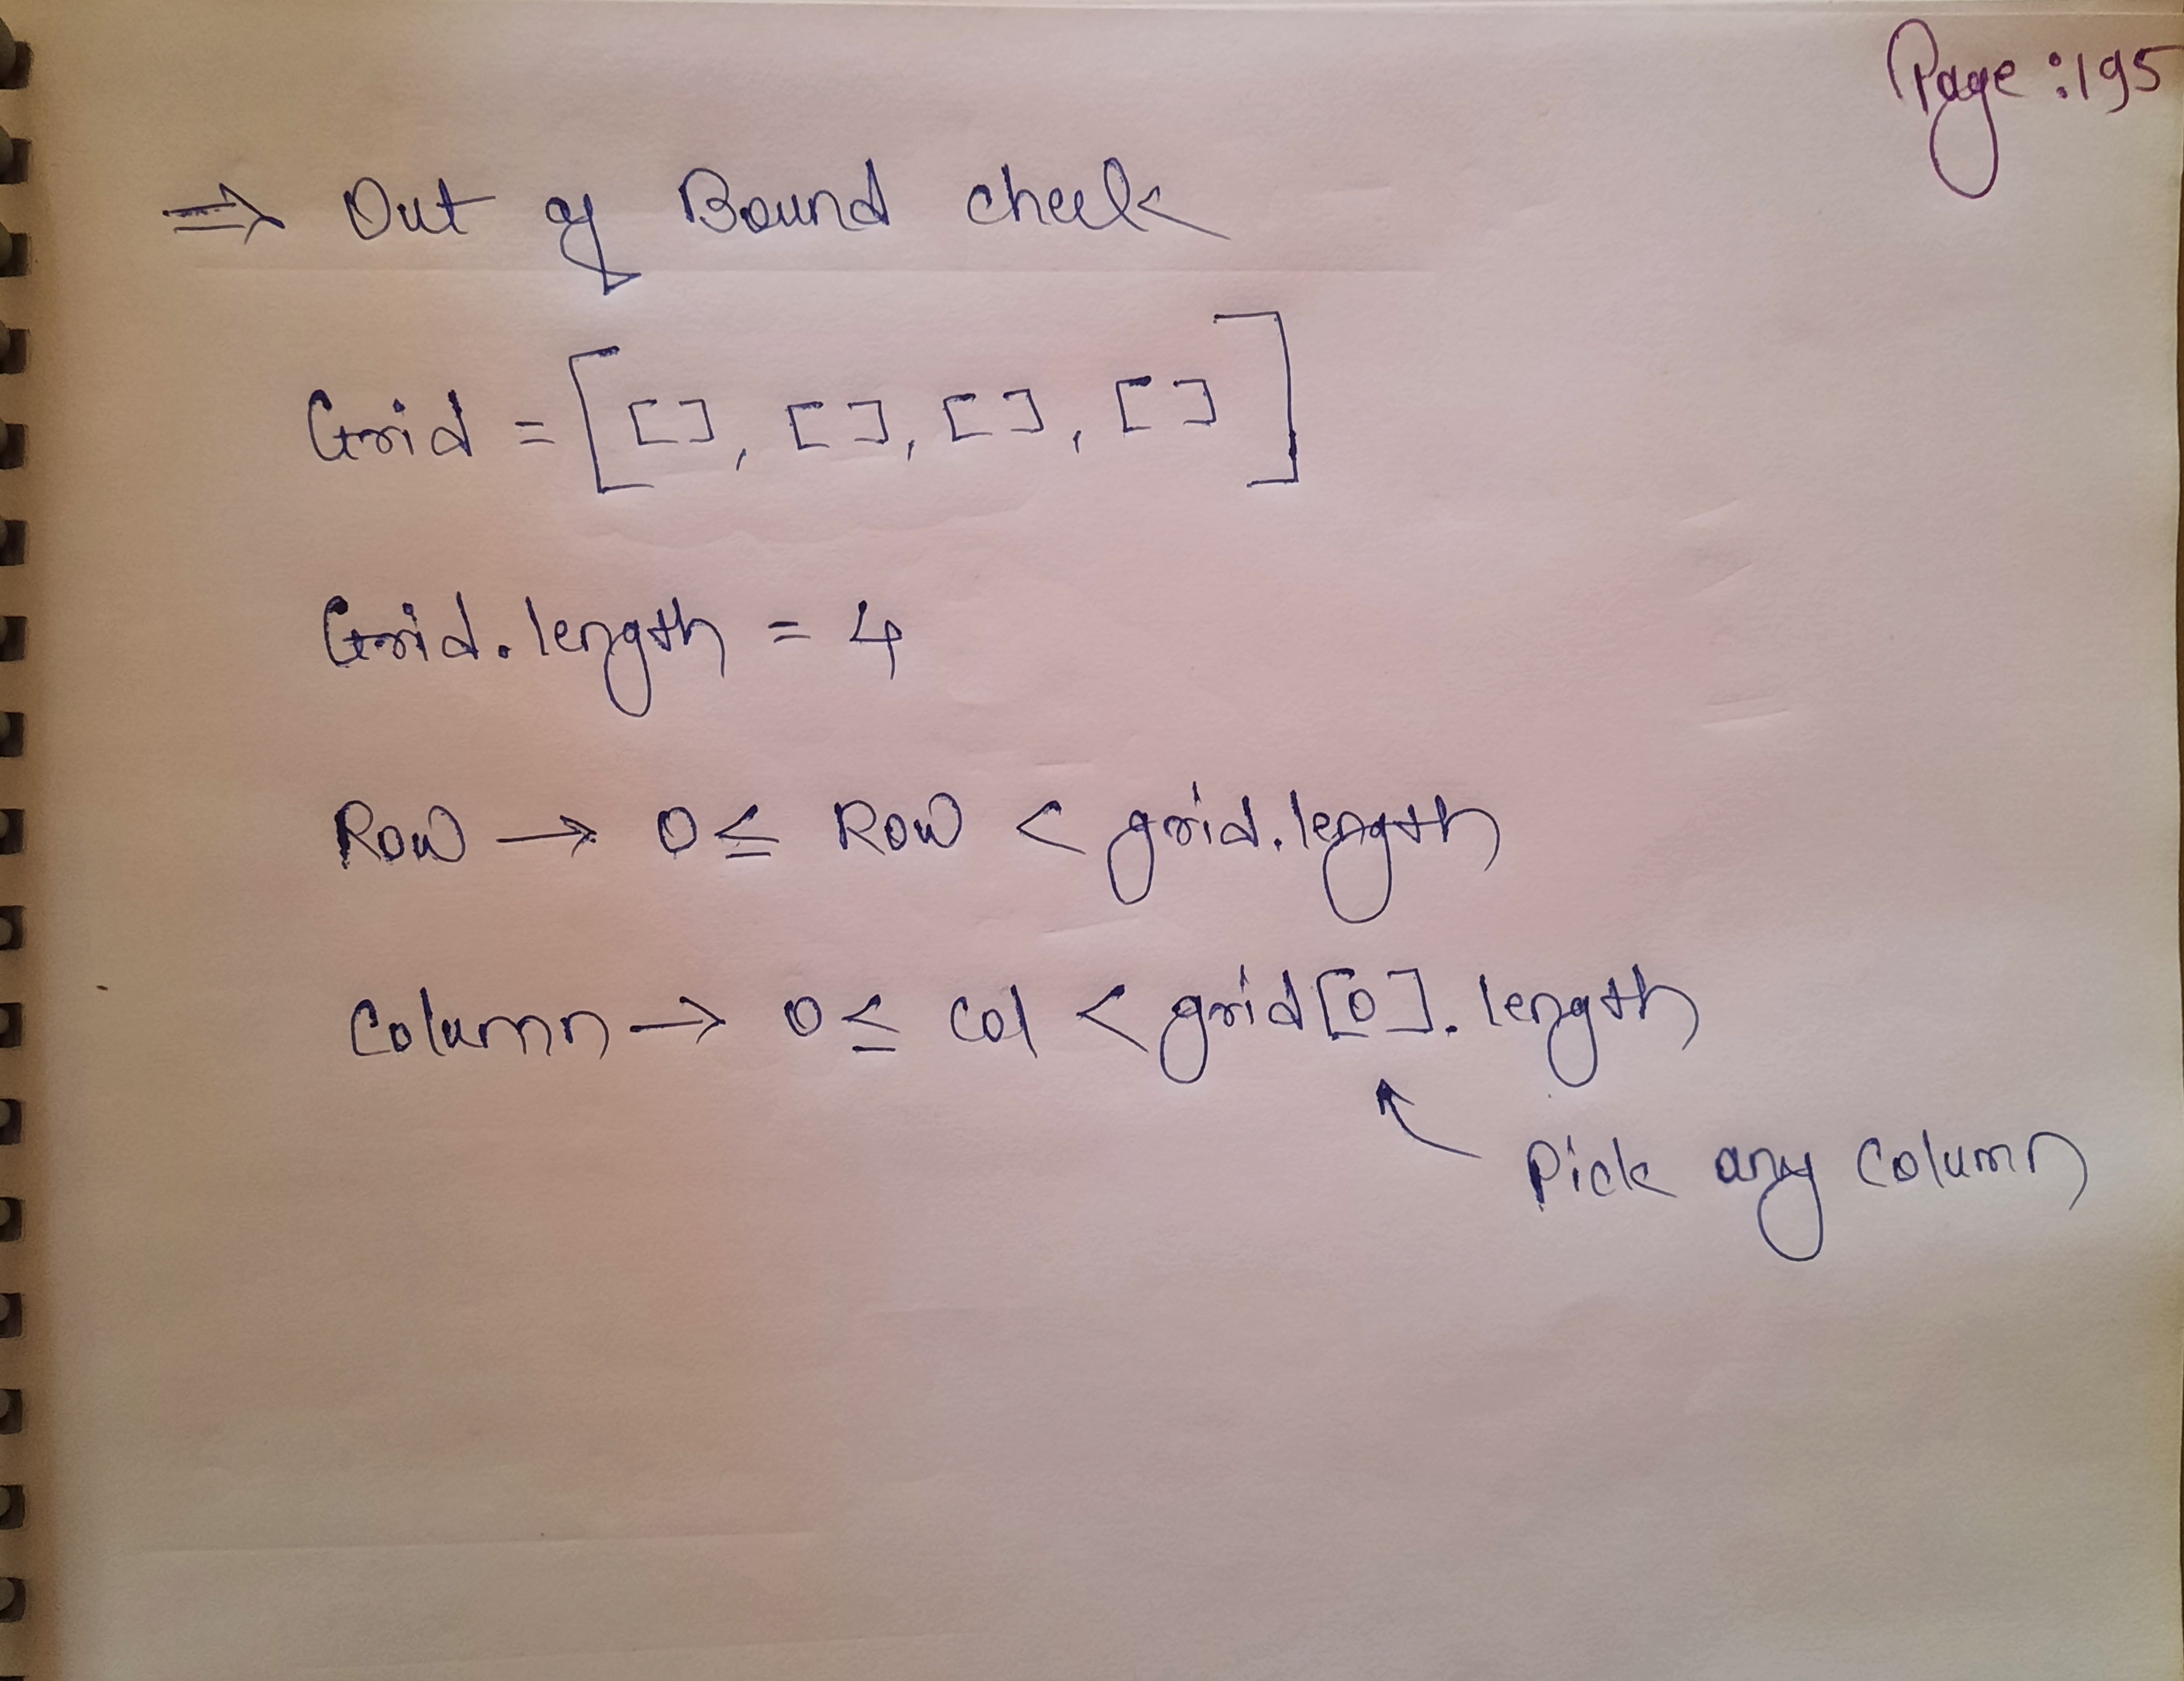 Page:195
⇒ Out of Bound check
Grid = [[], [], [], []]
Grid.length = 4
Row → 0 ≤ Row < grid.length
Column → 0 ≤ Col < grid[0].length
Pick any Column